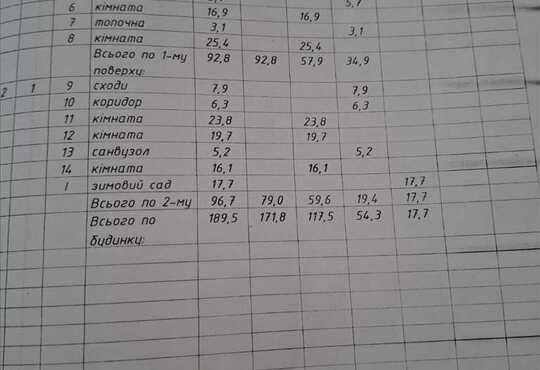 5,7
6 кімната 16,9 16,9
7 топочна 3,1 3,1
8 кімната 25,4 25,4
Всього по 1-му 92,8 92,8 57,9 34,9
поверху:
2 1 9 сходи 7,9 7,9
10 коридор 6,3 6,3
11 кімната 23,8 23,8
12 кімната 19,7 19,7
13 санвузол 5,2 5,2
14 кімната 16,1 16,1
I зимовий сад 17,7 17,7
Всього по 2-му 96,7 79,0 59,6 19,4 17,7
Всього по 189,5 171,8 117,5 54,3 17,7
будинку: